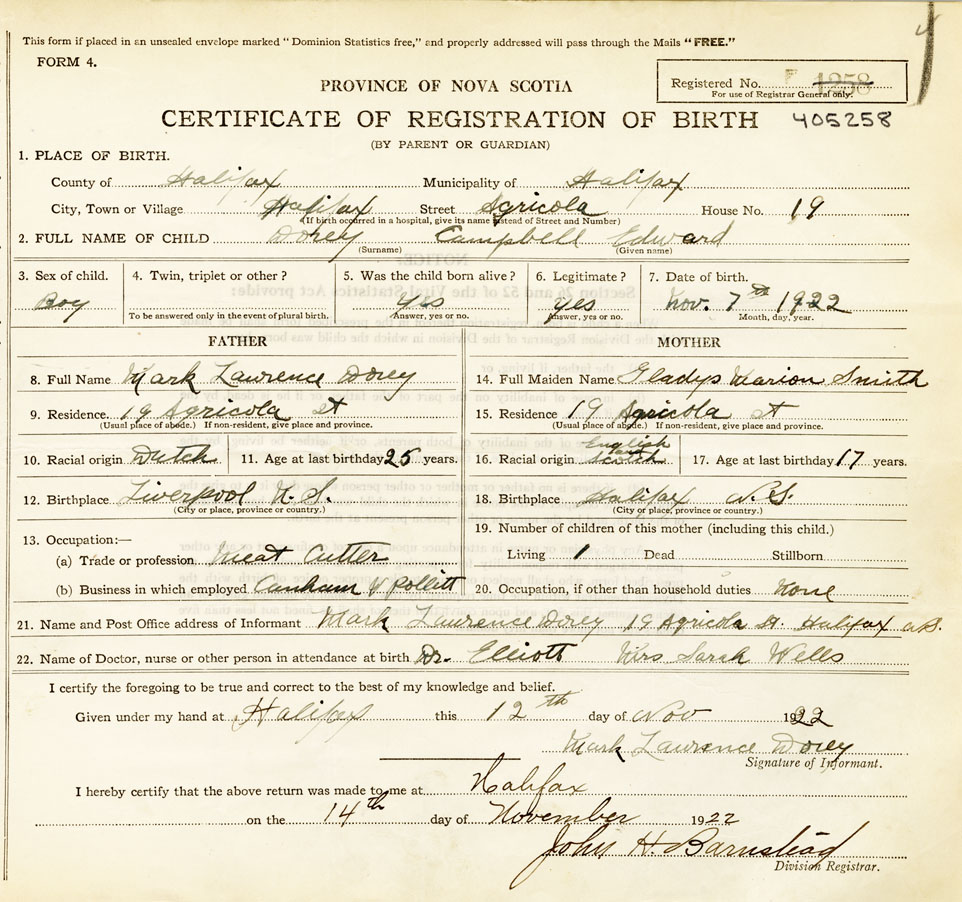 This form if placed in an unsealed envelope marked "Dominion Statistics free," and properly addressed will pass through the Mails "FREE."
FORM 4.
PROVINCE OF NOVA SCOTIA
Registered No. 1258
For use of Registrar General only.
CERTIFICATE OF REGISTRATION OF BIRTH 405258
(BY PARENT OR GUARDIAN)
1. PLACE OF BIRTH.
County of Halifax Municipality of Halifax
City, Town or Village Halifax Street Agricola House No. 19
(If birth occurred in a hospital, give its name instead of Street and Number)
2. FULL NAME OF CHILD Dorey Campbell Edward
(Surname) (Given name)
3. Sex of child. 4. Twin, triplet or other? 5. Was the child born alive? 6. Legitimate? 7. Date of birth.
Boy Yes Yes Nov. 7th 1922
To be answered only in the event of plural birth. Answer, yes or no. Answer, yes or no. Month, day, year.
FATHER MOTHER
8. Full Name Mark Lawrence Dorey 14. Full Maiden Name Gladys Marion Smith
9. Residence 19 Agricola st 15. Residence 19 Agricola st
(Usual place of abode.) If non-resident, give place and province. (Usual place of abode.) If non-resident, give place and province.
10. Racial origin Dutch 11. Age at last birthday 25 years. 16. Racial origin English and Scotch 17. Age at last birthday 17 years.
12. Birthplace Liverpool N. S. 18. Birthplace Halifax N.S.
(City or place, province or country.) (City or place, province or country.)
13. Occupation:— 19. Number of children of this mother (including this child.)
(a) Trade or profession Meat Cutter Living 1 Dead Stillborn
(b) Business in which employed Canham & Pollitt 20. Occupation, if other than household duties None
21. Name and Post Office address of Informant Mark Lawrence Dorey 19 Agricola St. Halifax N.S.
22. Name of Doctor, nurse or other person in attendance at birth Dr. Elliott Mrs Sarah Wells
I certify the foregoing to be true and correct to the best of my knowledge and belief.
Given under my hand at Halifax this 12th day of Nov 1922
Mark Lawrence Dorey
Signature of Informant.
I hereby certify that the above return was made to me at Halifax
on the 14th day of November 1922
John H. Barnstead
Division Registrar.